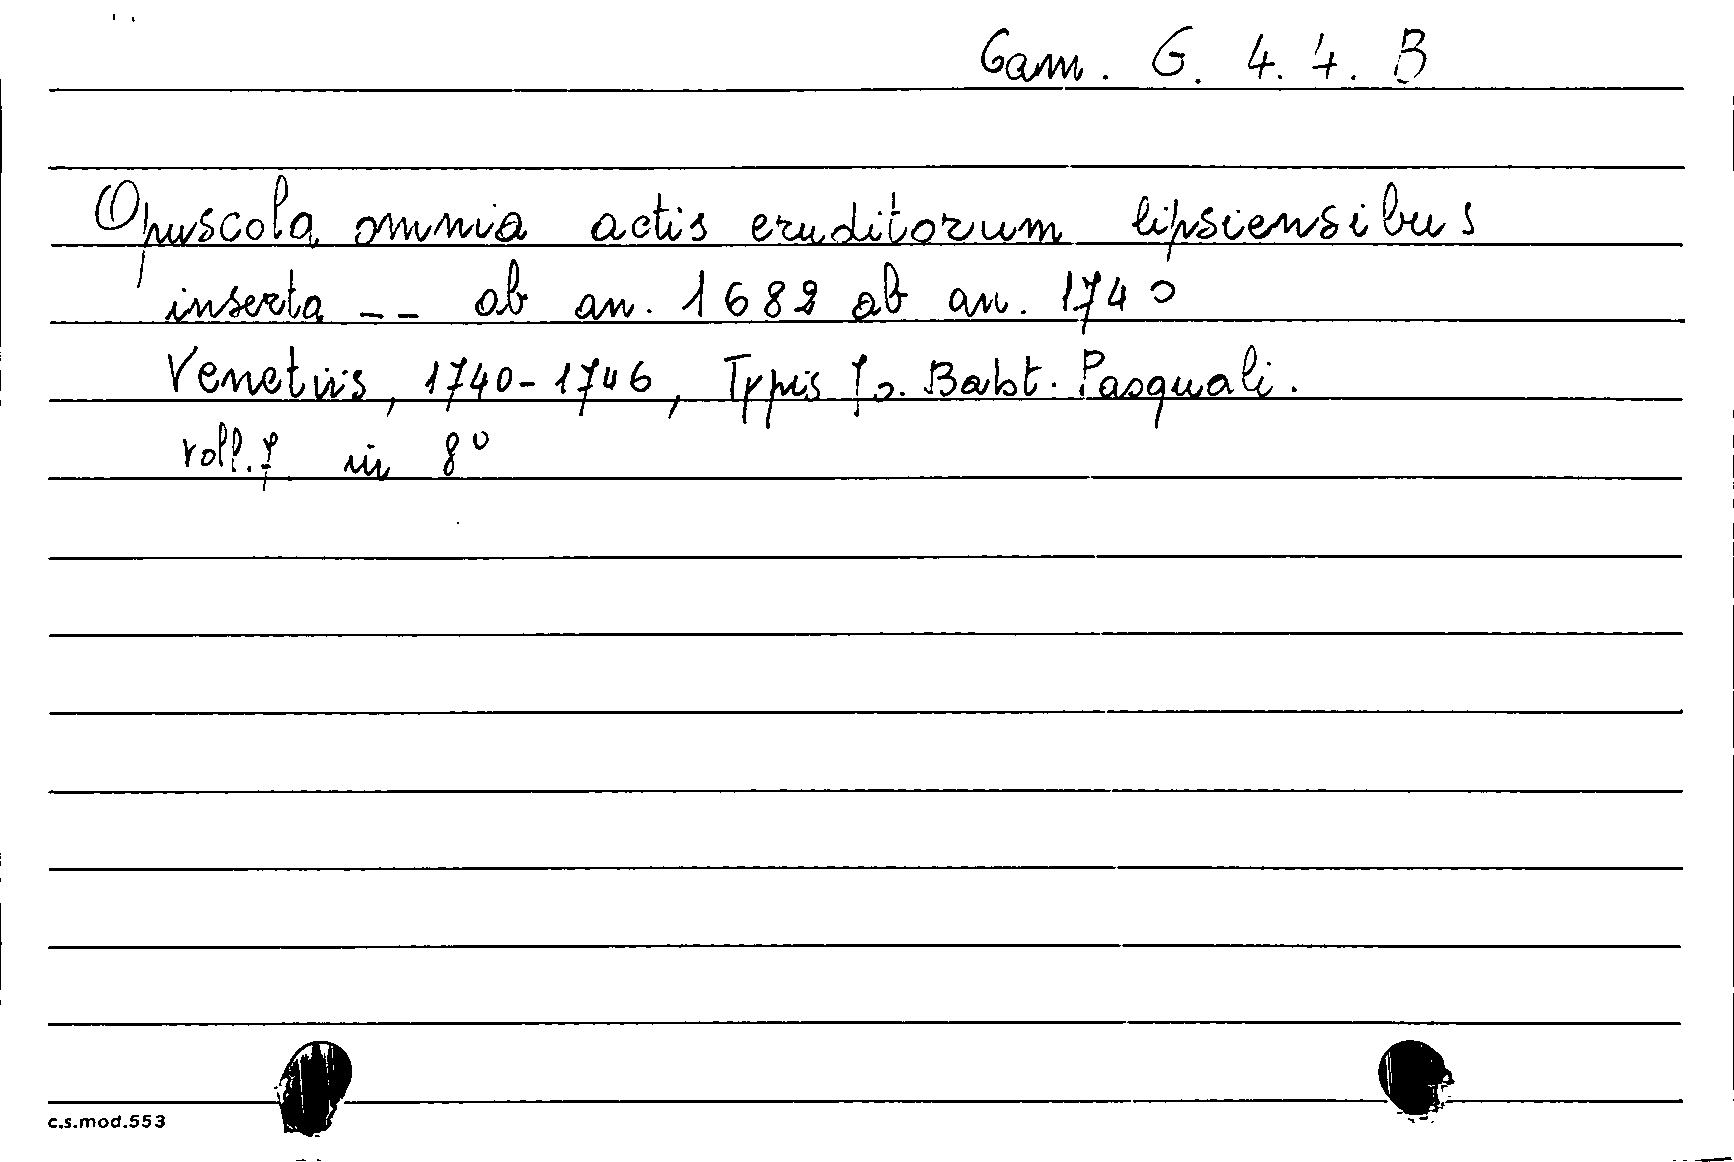 Gam. G. 4. 4. B
Opuscola omnia actis eruditorum lipsiensibus
inserta -- ab an. 1682 ab an. 1740
Venetiis, 1740-1746, Typis Jo. Babt. Pasquali.
voll. 7 in 8°
c.s.mod.553